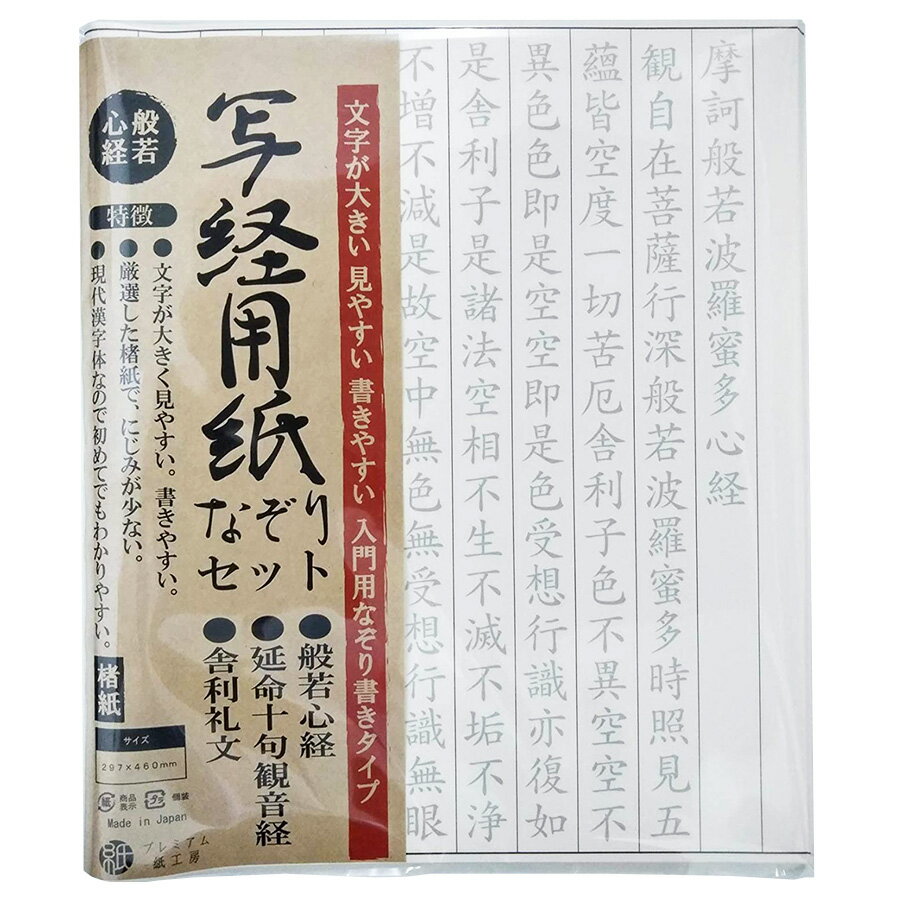 摩訶般若波羅蜜多心経
観自在菩薩行深般若波羅蜜多時照見五
蘊皆空度一切苦厄舎利子色不異空空不
異色色即是空空即是色受想行識亦復如
是舎利子是諸法空相不生不滅不垢不浄
不増不減是故空中無色無受想行識無眼
文字が大きい 見やすい 書きやすい 入門用なぞり書きタイプ
写経用紙
なぞり
セット
●般若心経
●延命十句観音経
●舎利礼文
般若
心経
特徴
●文字が大きく見やすい。書きやすい。
●厳選した楮紙で、にじみが少ない。
●現代漢字体なので初めてでもわかりやすい。
楮紙
サイズ
297×460mm
紙 商品表示 プラ 個装
Made in Japan
紙 プレミアム
紙工房